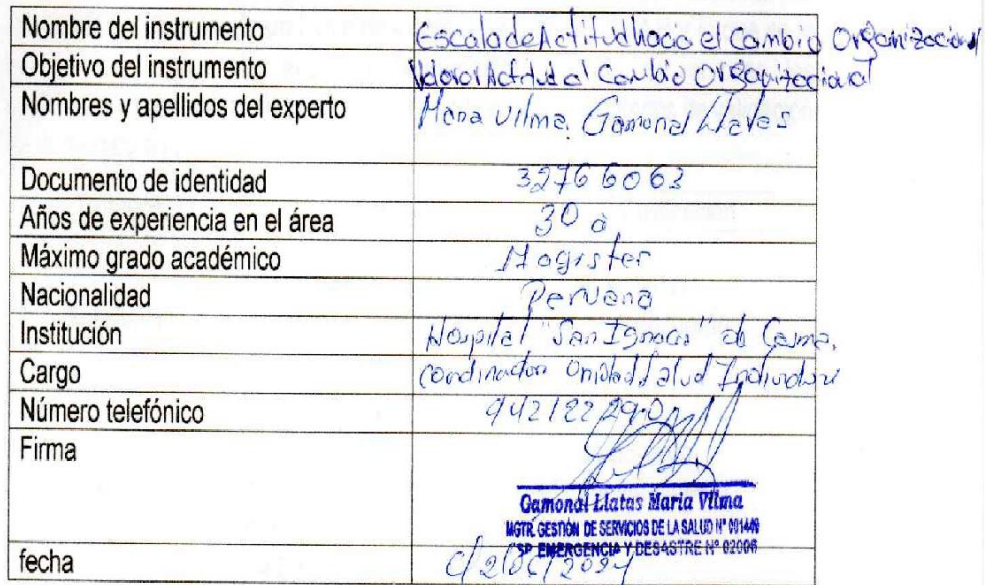 Nombre del instrumento Escala de Actitud hacia el Cambio Organizacional
Objetivo del instrumento Valorar Actitud al Cambio Organizacional
Nombres y apellidos del experto Maria Vilma Gamonal Llatas
Documento de identidad 32766063
Años de experiencia en el área 30 a
Máximo grado académico Magister
Nacionalidad Peruana
Institución Hospital "San Ignacio" de Casma.
Cargo Coordinador Unidad Salud Individual
Número telefónico 942122290
Firma
Gamonal Llatas Maria Vilma
MGTR. GESTIÓN DE SERVICIOS DE LA SALUD N° 001449
ESP. EMERGENCIA Y DESASTRE N° 02006
fecha